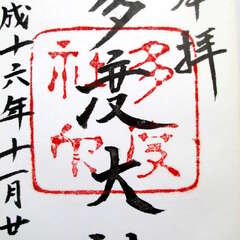 奉拝
多度大
多度
社印
成十六年十一月廿